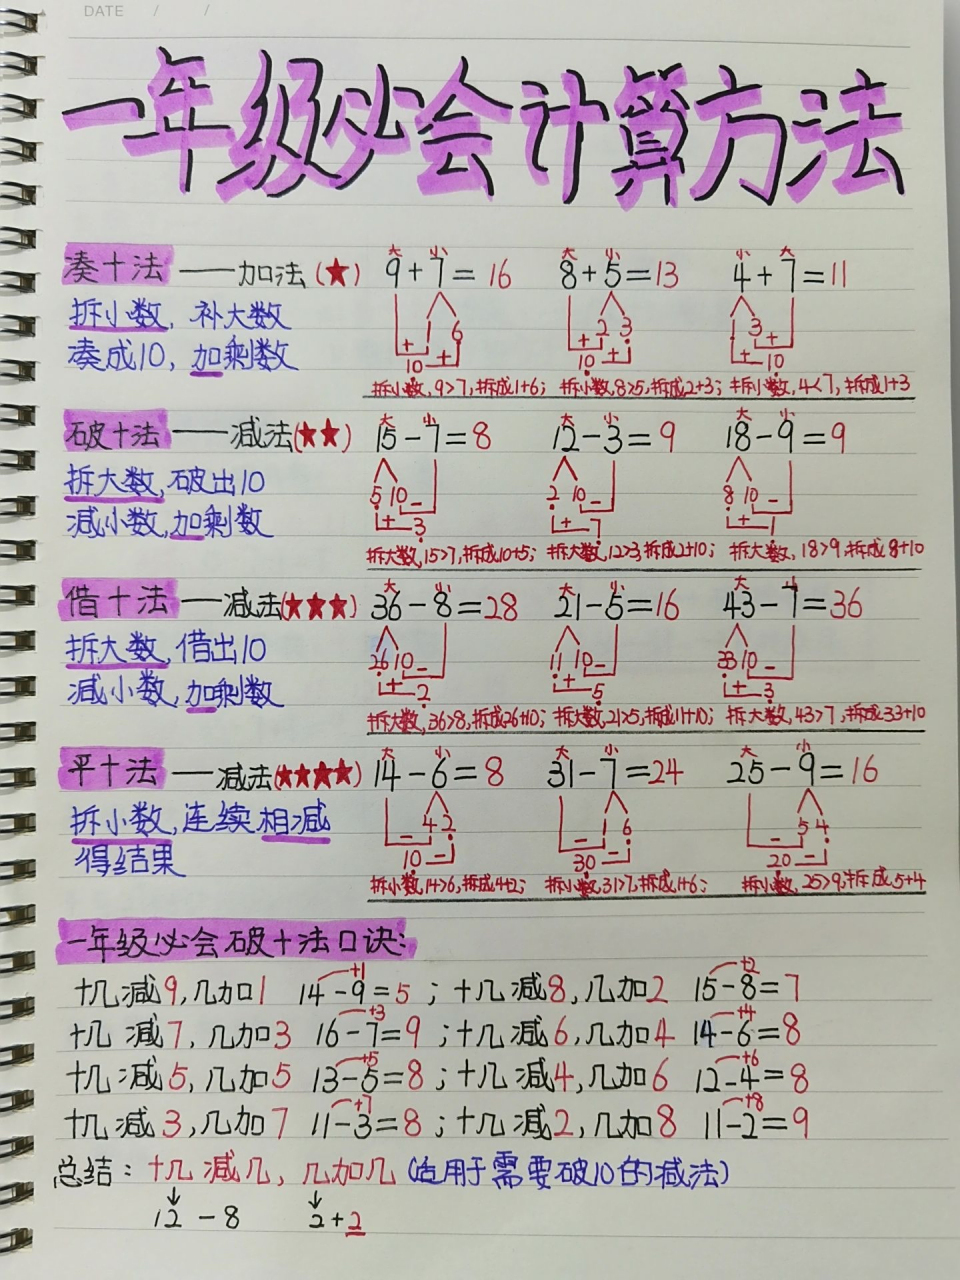 DATE / /
一年级必会计算方法
凑十法——加法(★) 9+7=16 8+5=13 4+7=11
大 小 大 小 小 大
拆小数, 补大数
凑成10, 加剩数
1 6 2 3 1 3
10 10 10
拆小数,9>7,拆成1+6; 拆小数,8>5,拆成2+3; 拆小数,4<7,拆成1+3
破十法——减法(★★) 15-7=8 12-3=9 18-9=9
大 小 大 小 大 小
拆大数,破出10
减小数,加剩数
5 10 2 10 8 10
3 7 1
拆大数,15>7,拆成10+5; 拆大数,12>3拆成2+10; 拆大数,18>9,拆成8+10
借十法——减法(★★★) 36-8=28 21-5=16 43-7=36
大 小 大 小 大 小
拆大数,借出10
减小数,加剩数
26 10 11 10 33 10
2 5 3
拆大数,36>8,拆成26+10; 拆大数,21>5,拆成11+10; 拆大数,43>7,拆成33+10
平十法——减法(★★★★) 14-6=8 31-7=24 25-9=16
大 小 大 小 大 小
拆小数,连续相减
得结果
4 2 1 6 5 4
10 30 20
拆小数,14>6,拆成4+2; 拆小数,31>7,拆成1+6; 拆小数,25>9,拆成5+4
一年级必会破十法口诀:
十几减9,几加1 14-9=5; 十几减8,几加2 15-8=7
+1 +2
十几减7,几加3 16-7=9; 十几减6,几加4 14-6=8
+3 +4
十几减5,几加5 13-5=8; 十几减4,几加6 12-4=8
+5 +6
十几减3,几加7 11-3=8; 十几减2,几加8 11-2=9
+7 +8
总结: 十几减几, 几加几(适用于需要破10的减法)
↓ ↓
12-8 2+2